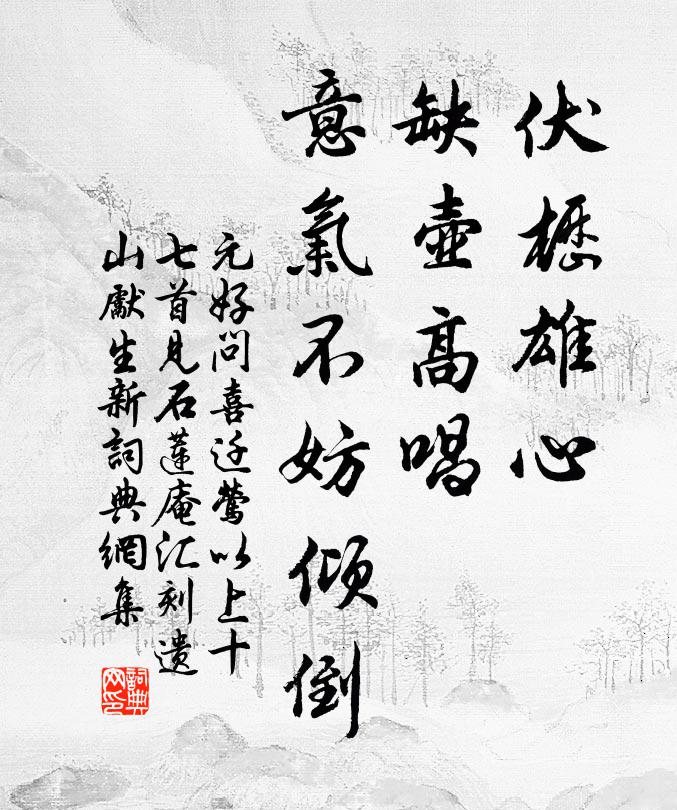 伏櫪雄心
缺壺高唱
意氣不妨傾倒
元好問喜迁鶯以上十
七首見石蓮庵汇刻遗
山厭生新詞典網集
詞典
网印